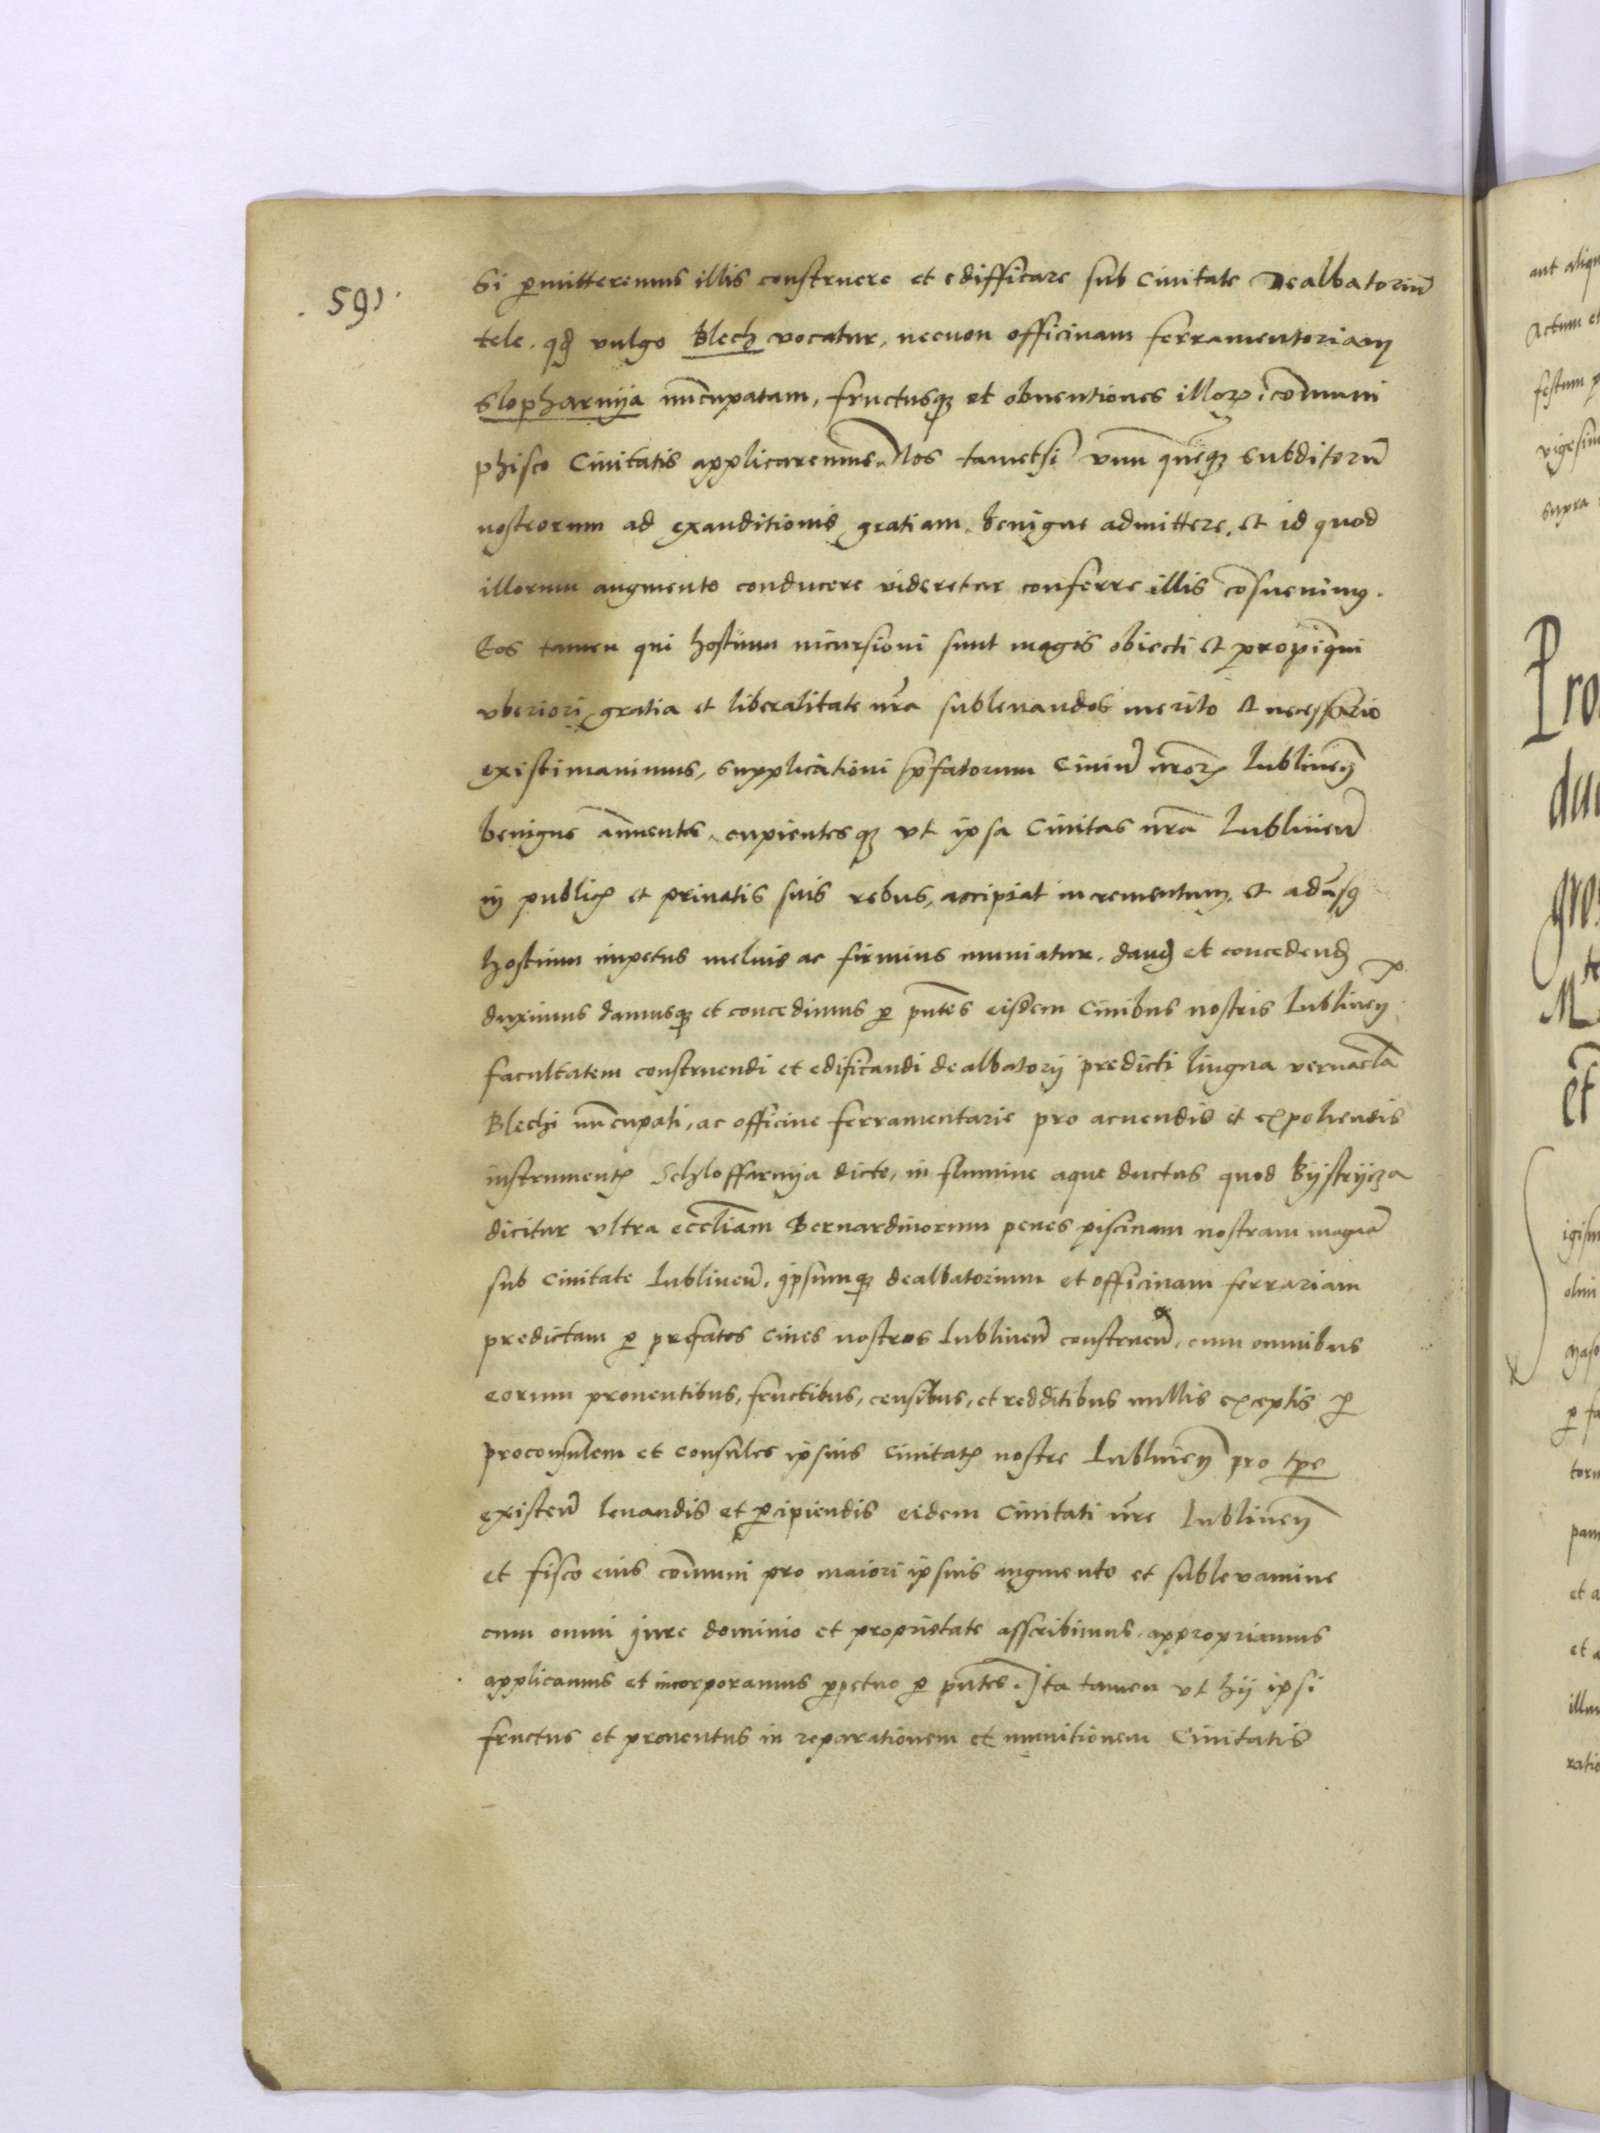 591
Si ꝑmitteremus illis construere et edifficare sub Ciuitate Dealbatoriũ
tele. qđ vulgo Blech vocatur, necnon officinam ferramentoriam
Slopharnija nũcupatam, fructusqꝫ et obuentiones illoꝝ, cõmuni
phisco Ciuitatis applicaremus. Nos tametsi vnũ quẽqꝫ subditorũ
nostrorum ad exauditionis gratiam benigne admittere, et id quod
illorum augmento conducere videretur conferre illis cõsueuimꝰ.
Eos tamen qui hostium incursioni sunt magis obiecti et propĩqui
vberiori gratia et liberalitate nr̃a subleuandos merito et necessario
existimauimus, supplicationi p̃fatorum Ciuiũ nr̃oꝝ Lublineñ
benigne ãnuentes, cupientesqꝫ vt ipsa Ciuitas nr̃a Lublineñ
in publicꝭ et priuatis suis rebus, accipiat incrementum, et aduẽsꝰ
hostium impetus melius ac firmius muniatur, dand̃ et concedend̃
duximus damusqꝫ et concedimus ꝑ pñtes eisdem Ciuibus nostris Lublineñ
facultatem construendi et edificandi dealbatorij predicti lingua vernacl̃a
Blechi nũcupati, ac officine ferramentarie pro acuendis et expoliendis
instrumentꝭ Schloffarnija dicte, in flumine aque ductus quod Bijstrijcza
dicitur vltra eccl̃iam Bernardinorum penes piscinam nostram magnã
sub Ciuitate Lublineñ, ipsumqꝫ dealbatorium et officinam ferrariam
predictam ꝑ prefatos Ciues nostros Lublineñ construeñd, cum omnibus
eorum prouentibus, fructibus, censibus, et redditibus nullis exceptis ꝑ
proconsulem et consules ipsius Ciuitatꝭ nostre Lublineñ pro tꝑe
existeñ leuandis et ꝑcipiendis eidem Ciuitati nr̃e Lublineñ
et fisco eius cõmuni pro maiori ipsius augmento et subleuamine
cum omni jure dominio et proprietate asscribimus, appropriamus
applicamus et incorporamus ꝑpetuo ꝑ pñtes. Ita tamen vt hij ipsi
fructus et prouentus in reparationem et munitionem Ciuitatis
aut aliqu
Actum et
festum p
vigesim
supra
Pro
du
gro
te
M
et
igism
olim
Maso
ꝑ fa
toru
pam
et a
et a
illu
ratio